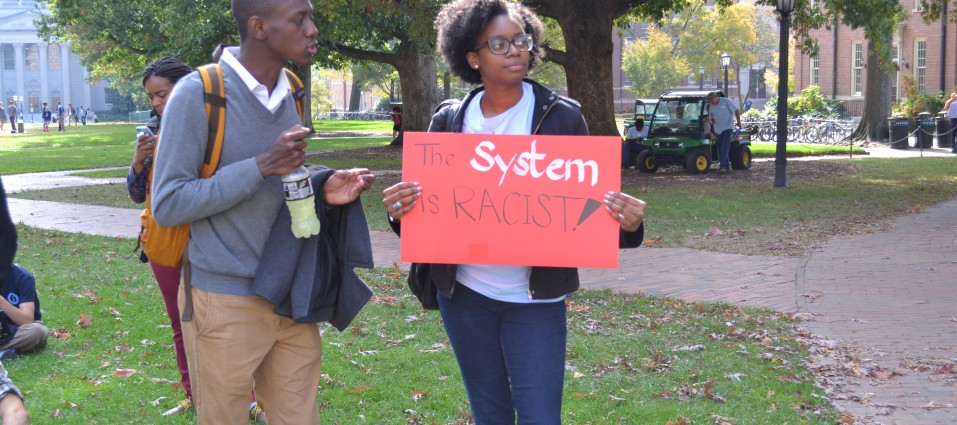 The System
is RACIST!